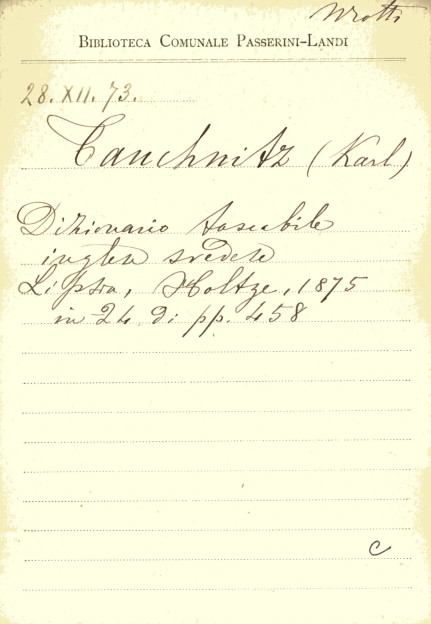 Wrotti
BIBLIOTECA COMUNALE PASSERINI-LANDI
28. XII. 73.
Tauchnitz (Karl)
Dizionario tascabile
inglese svedese
Lipsia, Holtze, 1875
in 24 di pp. 458
C